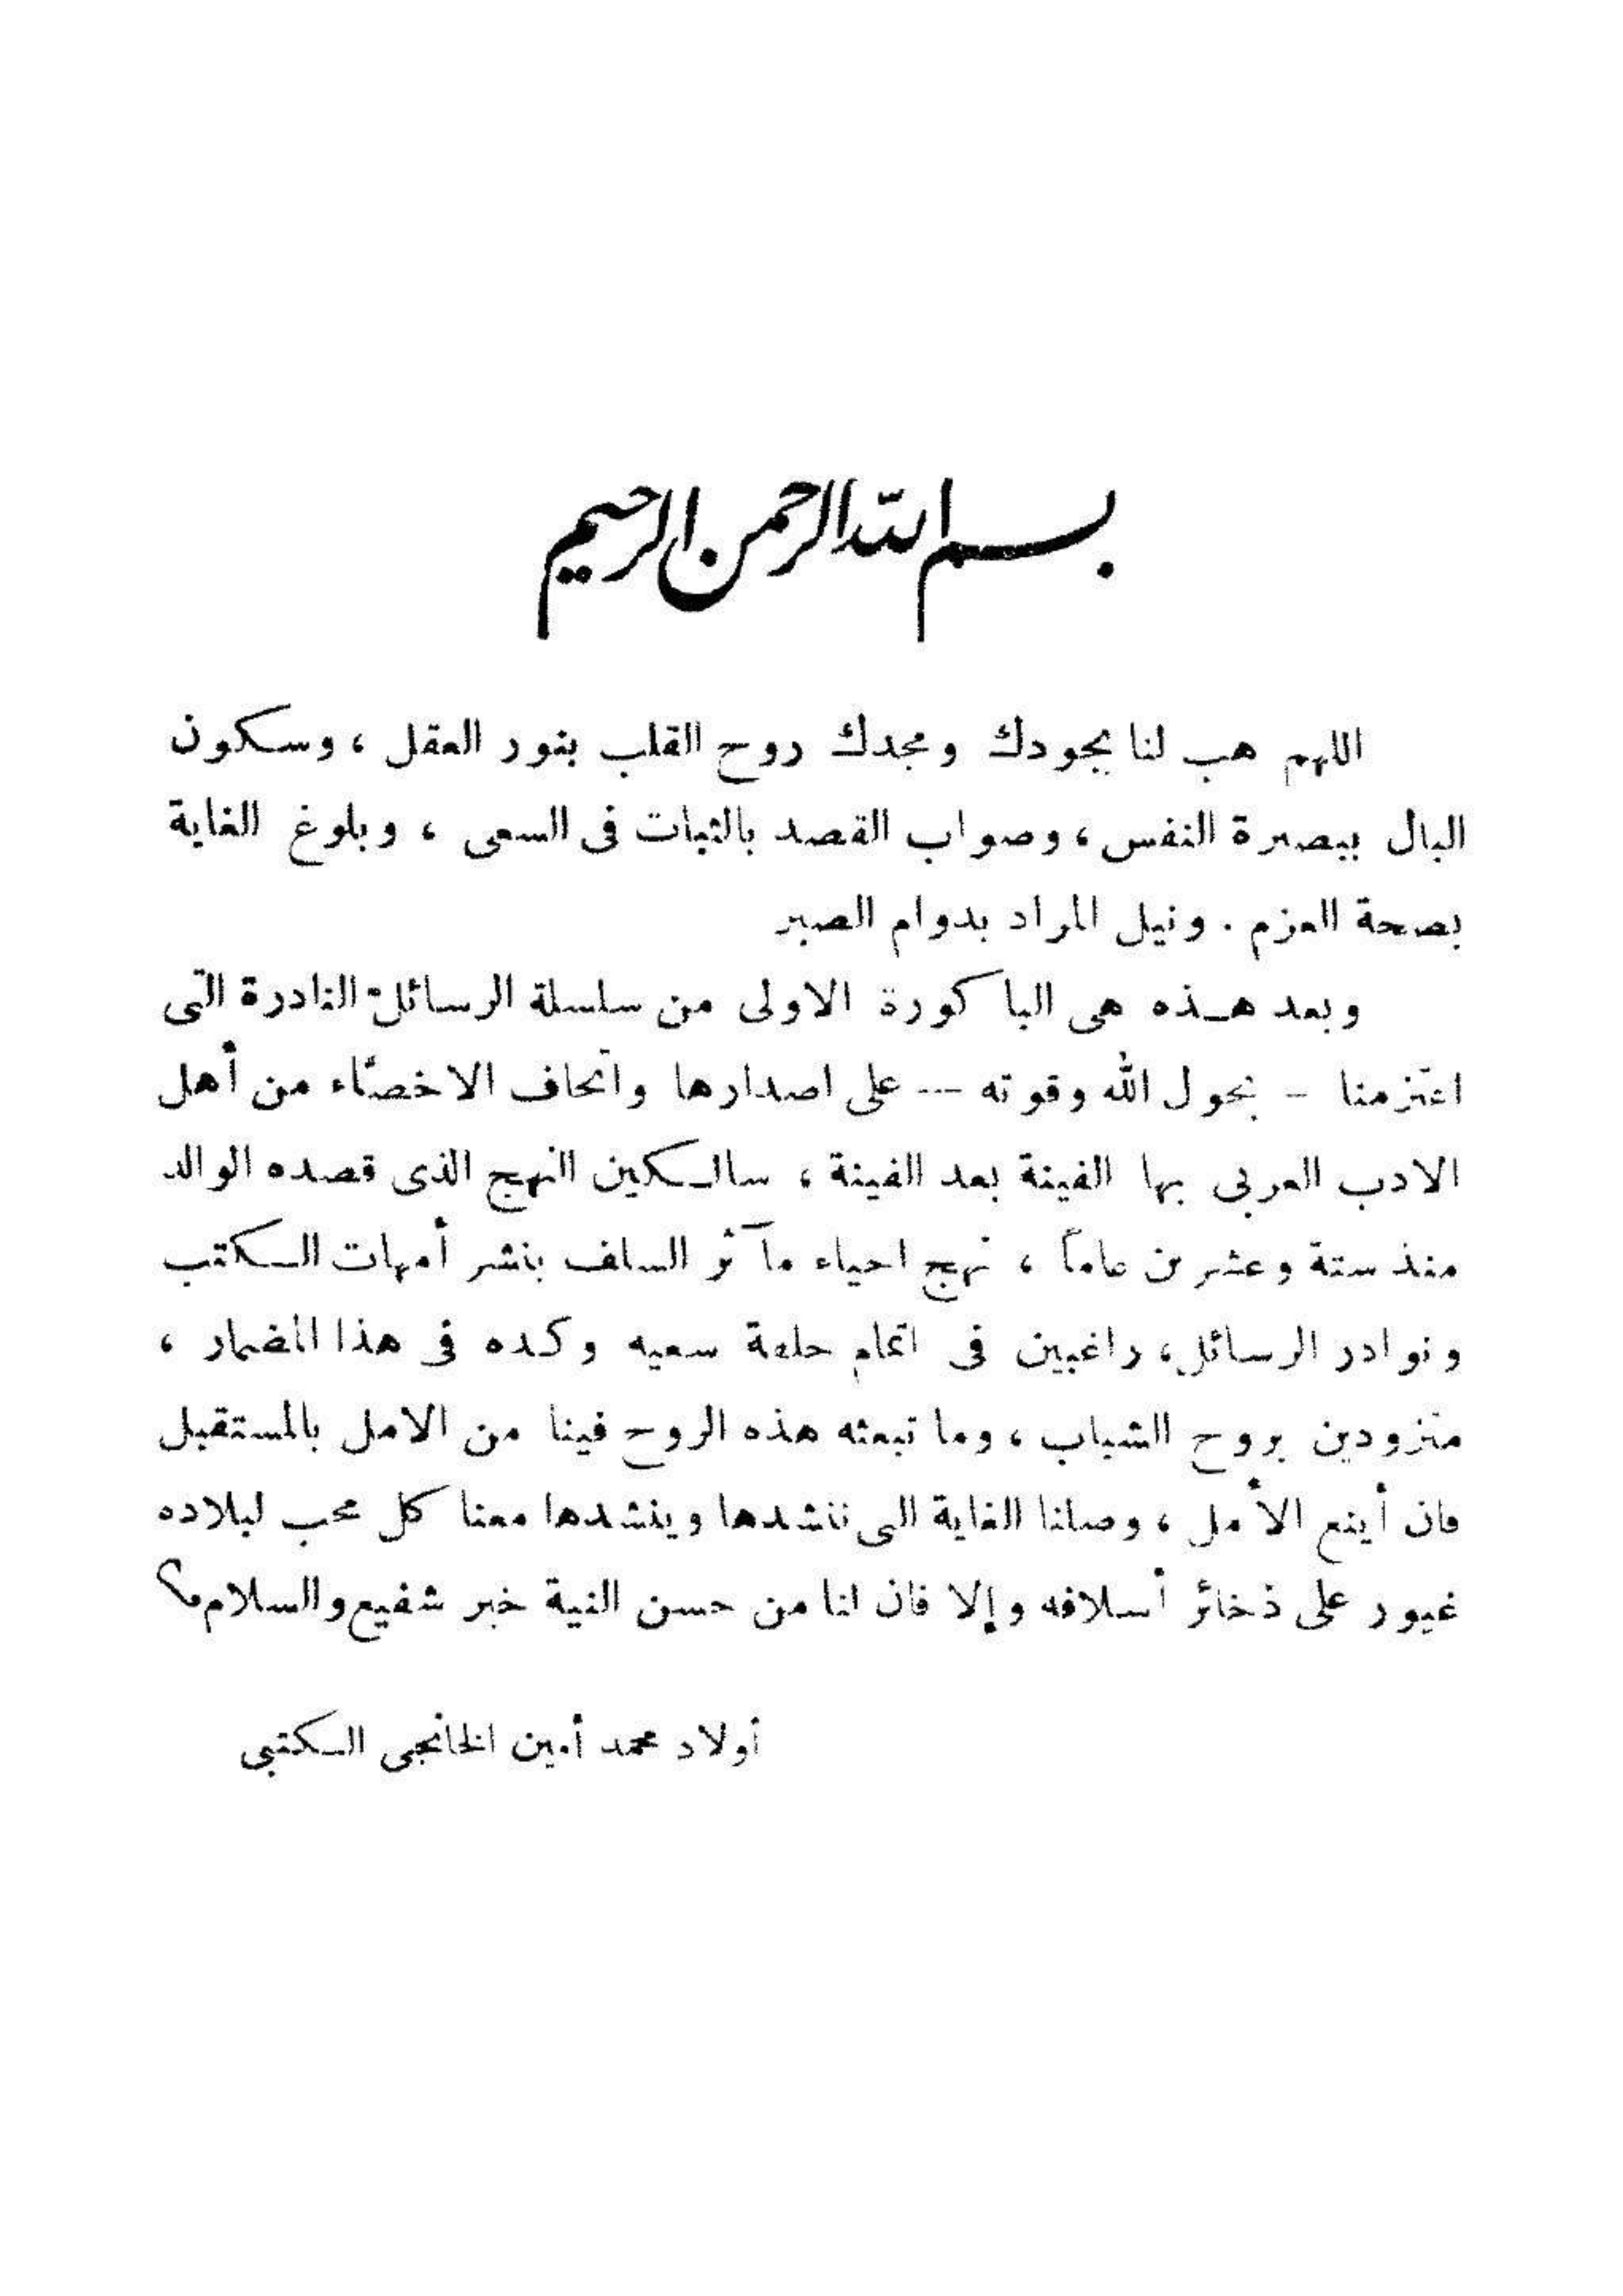 بسم الله الرحمن الرحيم
اللهم هب لنا بجودك ومجدك روح القلب بنور العقل ، وسكون
البال ببصيرة النفس ، وصواب القصد بالثبات فى السعى ، وبلوغ الغاية
بصحة العزم . ونيل المراد بدوام الصبر
وبعد هذه هى الباكورة الاولى من سلسلة الرسائل النادرة التى
اعتزمنا - بحول الله وقوته - على اصدارها واتحاف الاخصّاء من أهل
الادب العربى بها الفينة بعد الفينة ، سالكين النهج الذى قصده الوالد
منذ ستة وعشرين عاماً ، نهج احياء مآثر السلف بنشر أمهات الكتب
ونوادر الرسائل ، راغبين فى اتمام حلقة سعيه وكده فى هذا المضمار ،
متزودين بروح الشباب ، وما تبعثه هذه الروح فينا من الامل بالمستقبل
فان أينع الأمل ، وصلنا الغاية التى ننشدها وينشدها معنا كل محب لبلاده
غيور على ذخائر أسلافه وإلا فان لنا من حسن النية خير شفيع والسلام
أولاد محمد أمين الخانجى الكتبى